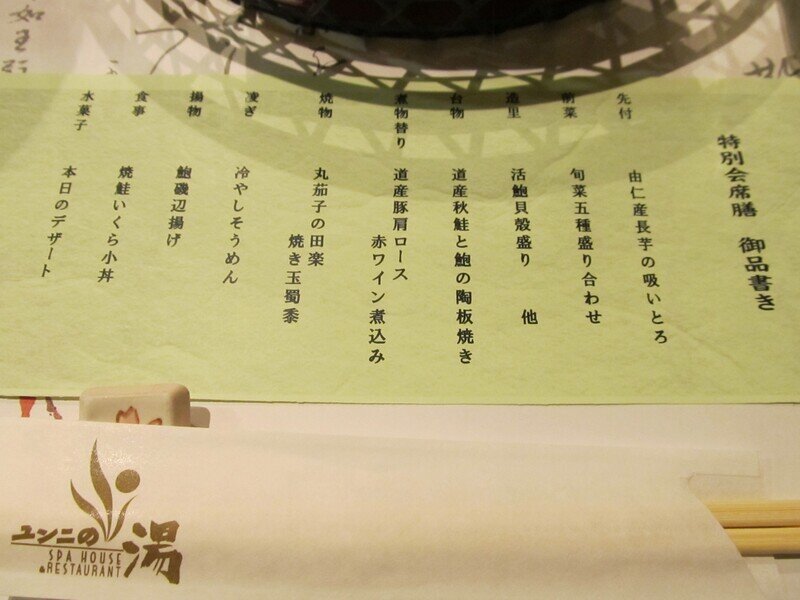 特別会席膳　御品書き
先付　由仁産長芋の吸いとろ
前菜　旬菜五種盛り合わせ
造里　活鮑貝殻盛り　他
台物　道産秋鮭と鮑の陶板焼き
煮物替り　道産豚肩ロース
赤ワイン煮込み
焼物　丸茄子の田楽
焼き玉蜀黍
凌ぎ　冷やしそうめん
揚物　鮑磯辺揚げ
食事　焼鮭いくら小丼
水菓子　本日のデザート
ユンニの湯
SPA HOUSE
&RESTAURANT